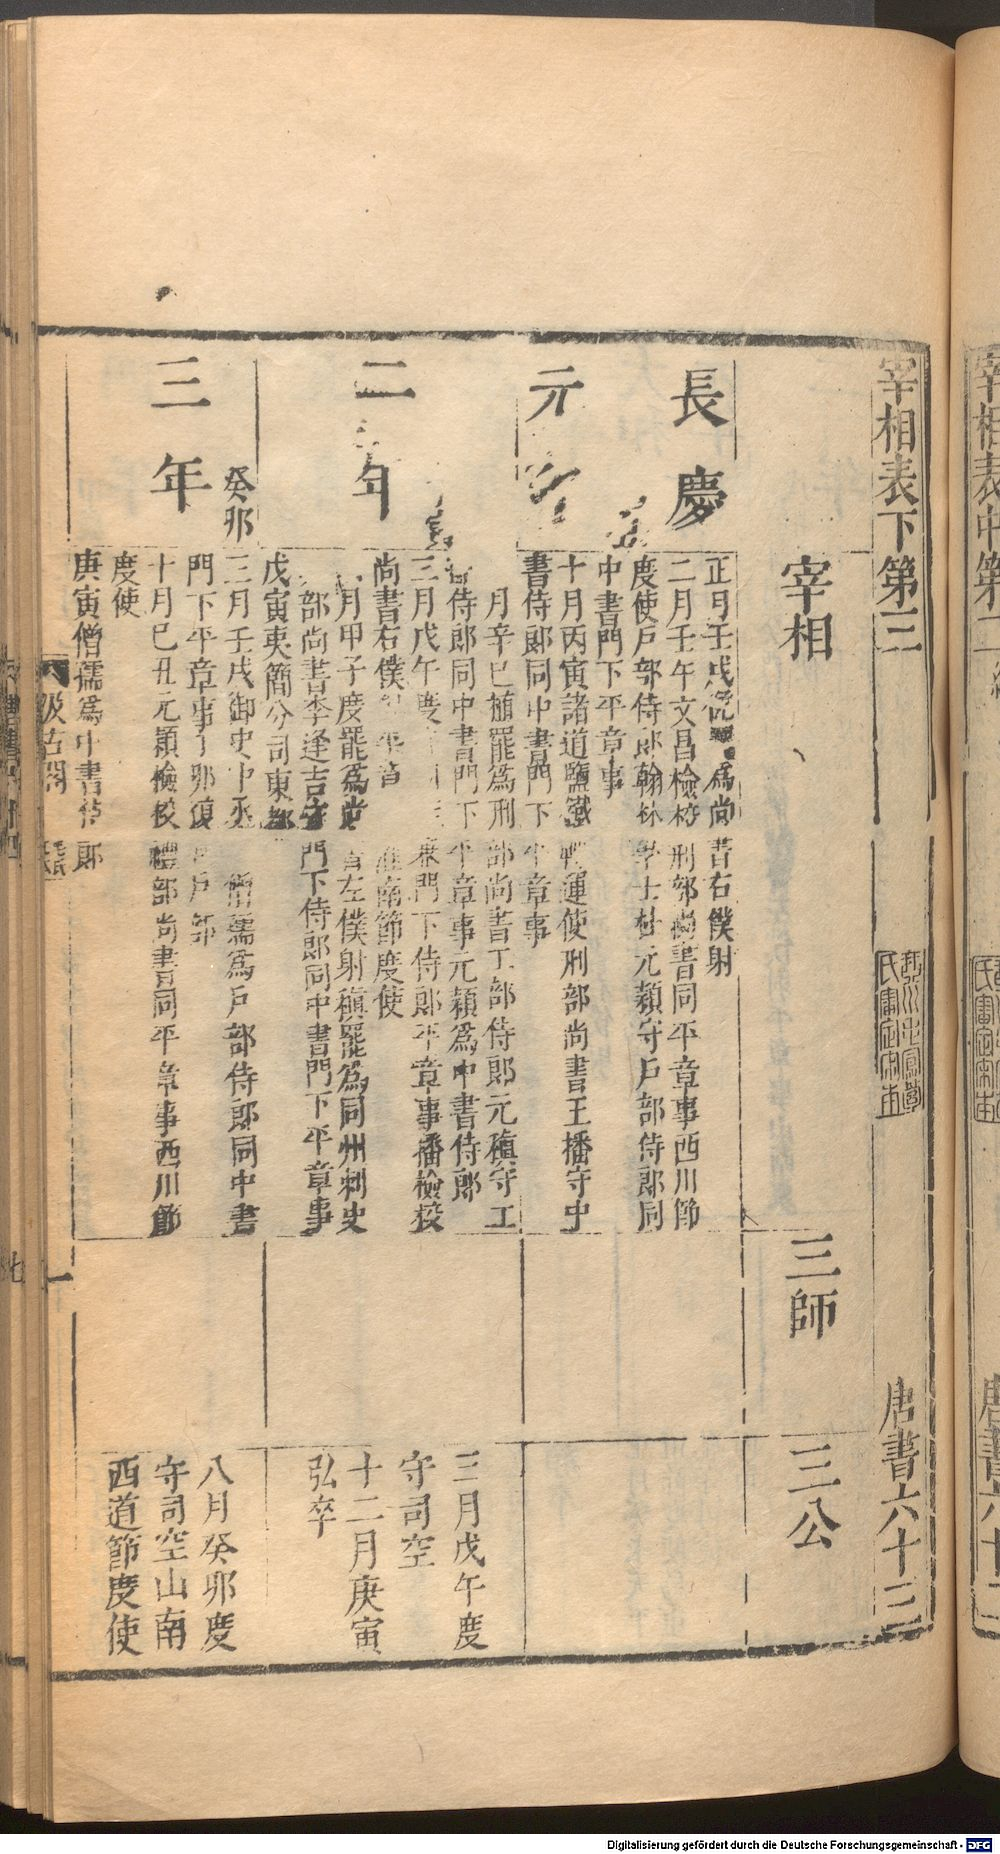 宰相表下第三 唐書六十三
宰相 三師 三公
長慶
正月壬戌俛 爲尚書右僕射
二月壬午文昌檢校刑部尚書同平章事西川節
度使戶部侍郎翰林學士杜元穎守戶部侍郎同
中書門下平章事
十月丙寅諸道鹽鐵轉運使刑部尚書王播守中
書侍郎同中書門下平章事
元年
月辛巳植罷爲刑部尚書工部侍郎元稹守工
部侍郎同中書門下平章事元穎爲中書侍郎
三月戊午度 兼門下侍郎平章事播檢校
尚書右僕 平章 淮南節度使
月甲子度罷爲尚書左僕射稹罷爲同州刺史
部尚書李逢吉守門下侍郎同中書門下平章事
戊寅夷簡分司東都
三月戊午度
守司空
十二月庚寅
弘卒
二年
癸卯
三月壬戌御史中丞 僧孺爲戶部侍郎同中書
門下平章事 卯復 戶部
十月己丑元穎檢校禮部尚書同平章事西川節
度使
庚寅僧孺爲中書侍郎
八月癸卯度
守司空山南
西道節度使
三年
汲古閣
一
宰相表中第二
唐書六十二
Digitalisierung gefördert durch die Deutsche Forschungsgemeinschaft - DFG